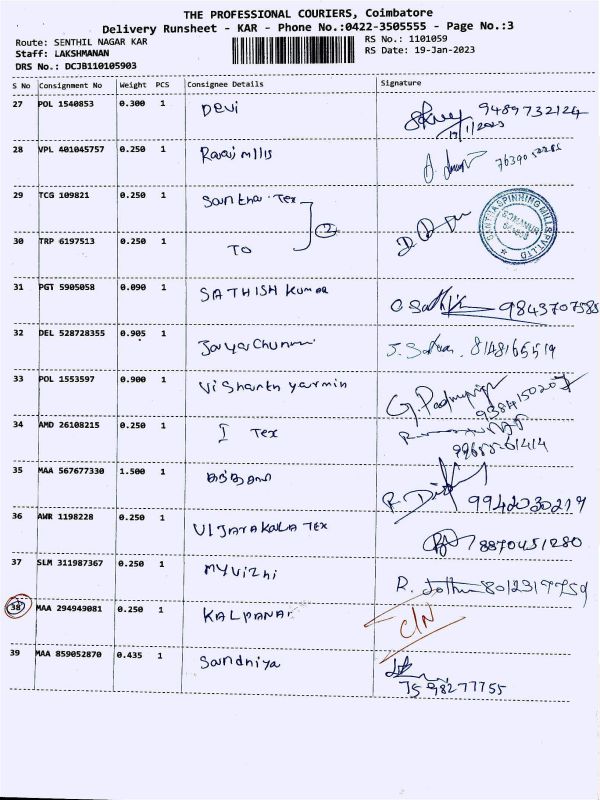 THE PROFESSIONAL COURIERS, Coimbatore
Delivery Runsheet - KAR - Phone No.:0422-3505555 - Page No.:3
Route: SENTHIL NAGAR KAR
RS No.: 1101059
Staff: LAKSHMANAN
RS Date: 19-Jan-2023
DRS No.: DCJB110105903
S No Consignment No Weight PCS Consignee Details Signature
27 POL 1540853 0.300 1 Devi 9489732124
19/1/2023
28 VPL 401045757 0.250 1 Ravi mills
29 TCG 109821 0.250 1 Santha Tex
SOMANUR
2
30 TRP 6197513 0.250 1 TO
31 PGT 5905058 0.090 1 SATHISH Kumar 9843707585
32 DEL 528728355 0.905 1 8148165519
33 POL 1553597 0.900 1 Vishanth yarmin G. 9384150207
34 AMD 26108215 0.250 1 I Tex
35 MAA 567677330 1.500 1 9942030219
36 AWR 1198228 0.250 1 VIJAYAKALA TEX 8870451280
37 SLM 311987367 0.250 1 Myvizhi R. 8012319759
38 MAA 294949081 0.250 1 KALPANAK C/N
39 MAA 859052870 0.435 1 Sandhiya
7598277755